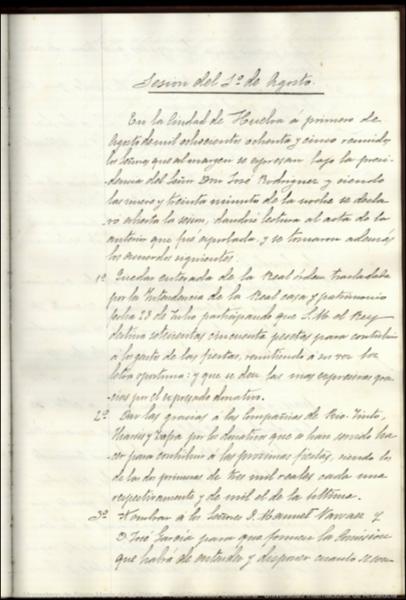 Sesion del 1º de Agosto.
En la Ciudad de Huelva á primero de
Agosto de mil ochocientos ochenta y cinco reunidos
los Señores que al margen se espresan bajo la presi-
dencia del Señor Don José Rodriguez y siendo
las nueve y treinta minutos de la noche se decla-
ró abierta la sesion, dandose lectura al acta de la
anterior que fué aprobada, y se tomaron además
los acuerdos siguientes
1º Quedar enterada de la Real órden trasladada
por la Intendencia de la Real casa y patrimonio
fecha 23 de Julio participando que S. M. el Rey
destina setecientas cincuenta pesetas para contribuir
á los gastos de las fiestas, remitiendo á su vez la
letra oportuna: y que se den las mas espresivas gra-
cias por el espresado donativo.
2º Dar las gracias á las Compañias de Rio-Tinto,
Tharsis y Zafra por los donativos que se han servido ha-
cer para contribuir á las proximas fiestas, siendo los
de las dos primeras de tres mil reales cada una
respectivamente y de mil el de la última.
3º Nombrar á los Señores D. Manuel Narvaez y
D. José Garcia para que formen la Comision
que habrá de entender y disponer cuanto